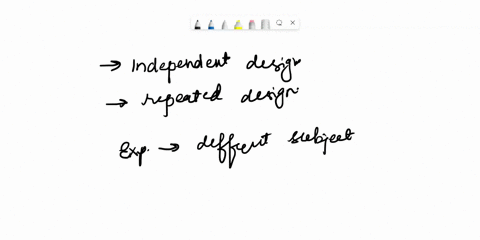 → Independent design
→ repeated design
Exp. → different subject